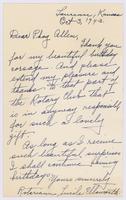 Lawrence, Kansas
Oct. 3, 1942
Dear Phog Allen,
Thank you
for my beautiful birthday
corsage. And please
extend my opinion and
thanks to that part of
the Rotary Club that
is in any way responsible
for such a lovely
gift.
As long as I receive
such beautiful surprises
I shall continue having
birthdays.
Yours sincerely,
Rotarian